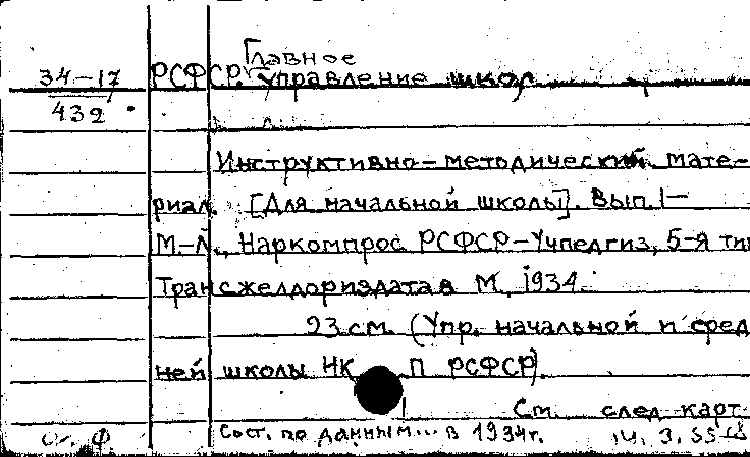 Главное
34-17 РСФСР. Управление школ
432
Инструктивно-методический мате-
риал. [Для начальной школы]. Вып. 1-
М.-Л., Наркомпрос РСФСР-Учпедгиз, 5-я тип
Трансжелдориздата в М, 1934.
23 см. (Упр. начальной и сред
ней школы НК П РСФСР).
См. след карт
Сост. по данным... в 1934г.